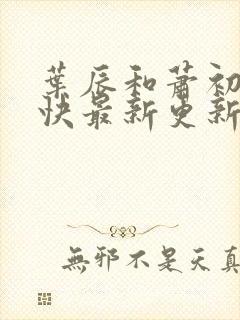 葉辰和蕭初
快最新更新
無邪不是天真